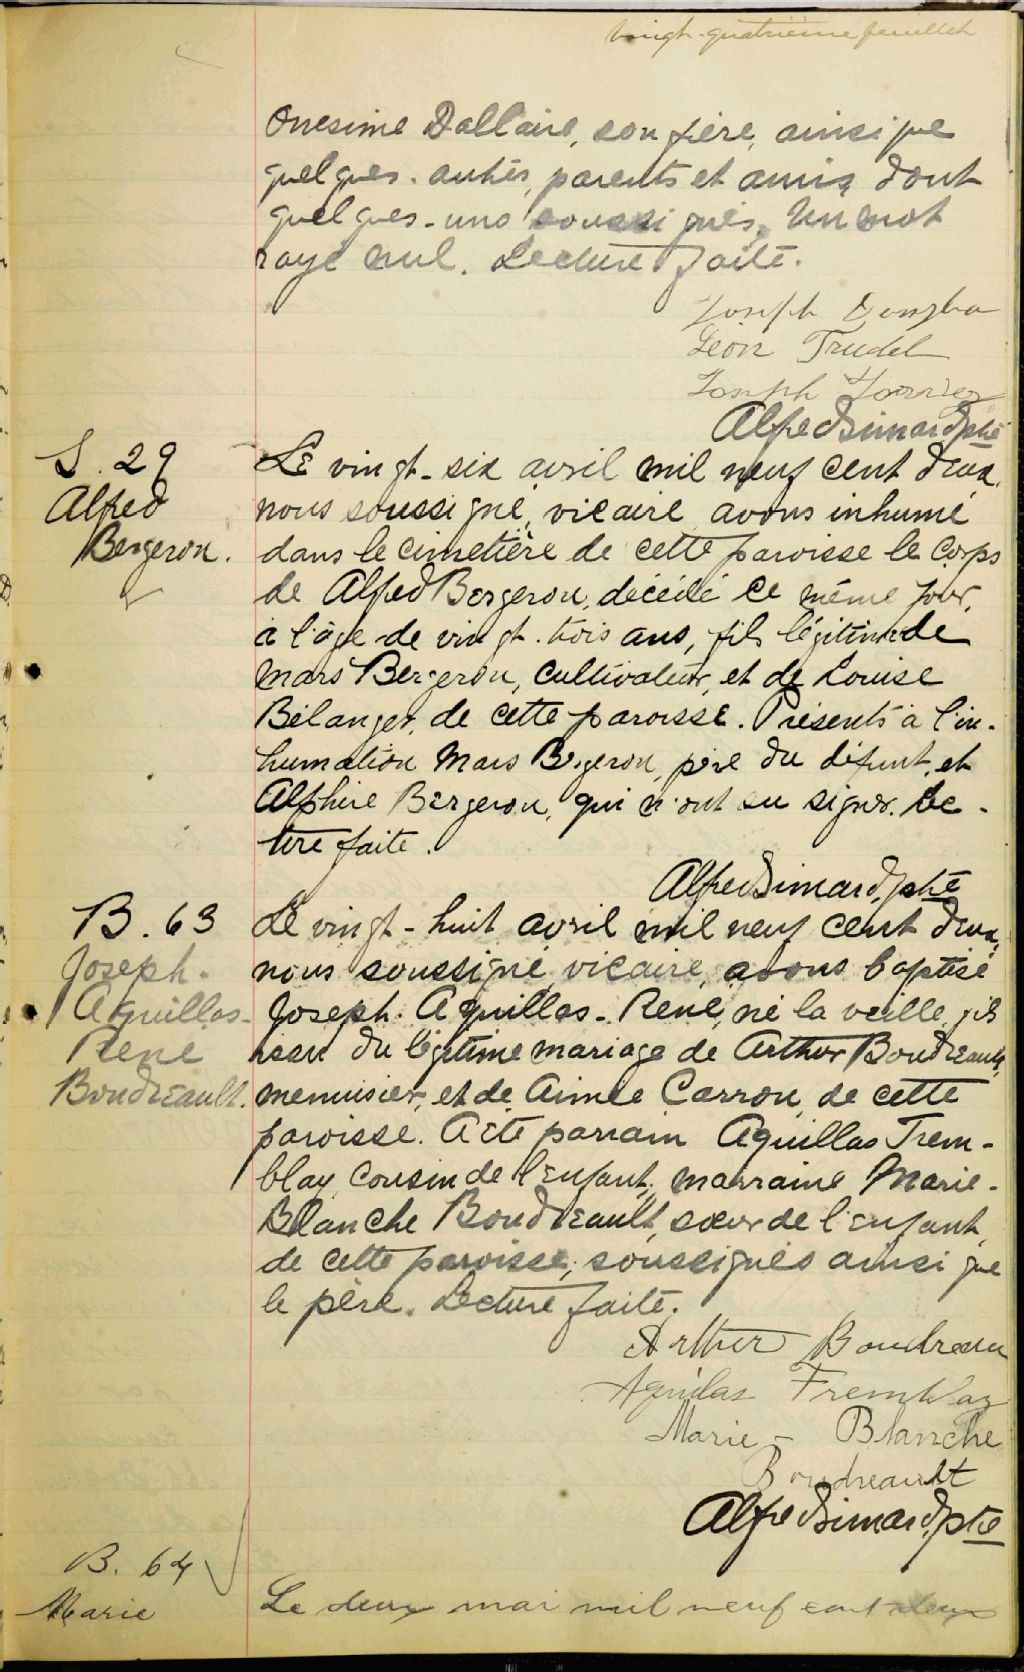 vingt-quatrième feuillet
Onesime Dallaire, son frère, ainsi que
quelques autres, parents et amis dont
quelques-uns soussignés. Un mot
rayé nul. Lecture faite.
Joseph
Léon Trudel
Joseph
Alfred Simard, ptre
S. 29
Alfred
Bergeron.
Le vingt-six avril mil neuf cent deux,
nous soussigné, vicaire avons inhumé
dans le cimetière de cette paroisse le corps
de Alfred Bergeron, décédé ce même jour,
à l'âge de vingt-trois ans, fils légitime de
Mars Bergeron, cultivateur, et de Louise
Bélanger, de cette paroisse. Présents à l'in-
humation Mars Bergeron, père du défunt, et
Alphire Bergeron, qui n'ont su signer. Lec-
ture faite.
Alfred Simard, ptre
B. 63
Joseph-
Aquillas-
René
Boudreault.
Le vingt-huit avril mil neuf cent deux,
nous soussigné, vicaire, avons baptisé
Joseph-Aquillas-René, né la veille, fils
issu du légitime mariage de Arthur Boudreault,
menuisier, et de Aimée Carron, de cette
paroisse. A été parrain Aquillas Trem-
blay, cousin de l'enfant; marraine Marie-
Blanche Boudreault, sœur de l'enfant,
de cette paroisse, soussignés ainsi que
le père. Lecture faite.
Arthur Boudreau
Aquilas Tremblay
Marie - Blanche
Boudreault
Alfred Simard, ptre
B. 64
Marie
Le deux mai mil neuf cent deux